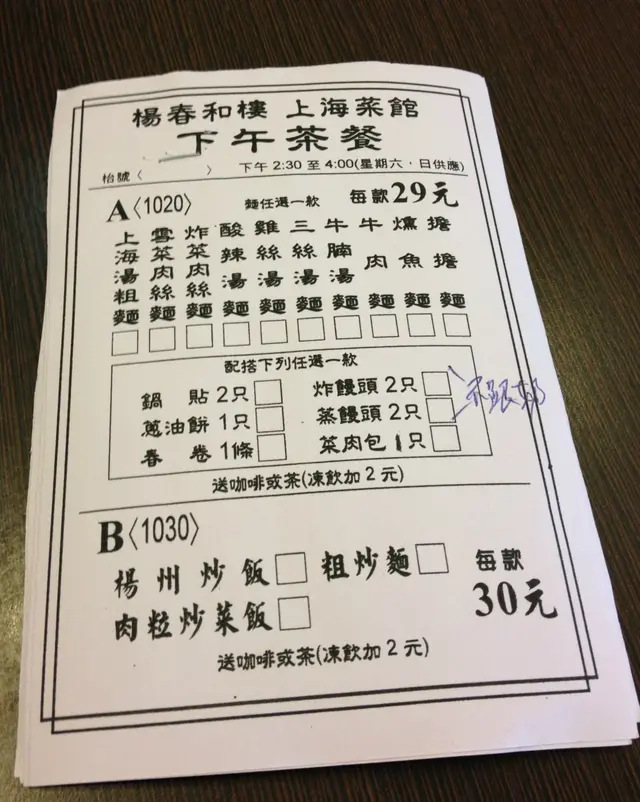 楊春和樓 上海菜館
下午茶餐
枱號〈 〉 下午 2:30 至 4:00(星期六，日供應)
A〈1020〉 麵任選一款 每款29元
上海湯粗麵
雪菜肉絲麵
炸菜肉絲麵
酸辣湯麵
雞絲湯麵
三絲湯麵
牛腩湯麵
牛肉麵
燻魚麵
擔擔麵
配搭下列任選一款
鍋貼 2只 炸饅頭 2只
蔥油餅 1只 蒸饅頭 2只
春卷 1條 菜肉包 1只
送咖啡或茶(凍飲加 2 元)
B〈1030〉
楊州炒飯 粗炒麵 每款
肉粒炒菜飯 30元
送咖啡或茶(凍飲加 2 元)